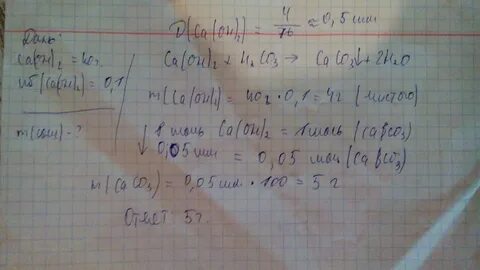 Дано:
Ca(OH)2 = 40г.
wб (Ca(OH)2) = 0,1
m(соли) - ?
ν(Ca(OH)2) = 4/76 ≈ 0,5 моль
Ca(OH)2 + H2CO3 → CaCO3↓ + 2H2O
m(Ca(OH)2) = 40г · 0,1 = 4г (чистого)
1 моль Ca(OH)2 = 1 моль (CaCO3)
0,05 моль = 0,05 моль (CaCO3)
m(CaCO3) = 0,05 моль · 100 = 5 г
Ответ: 5г.